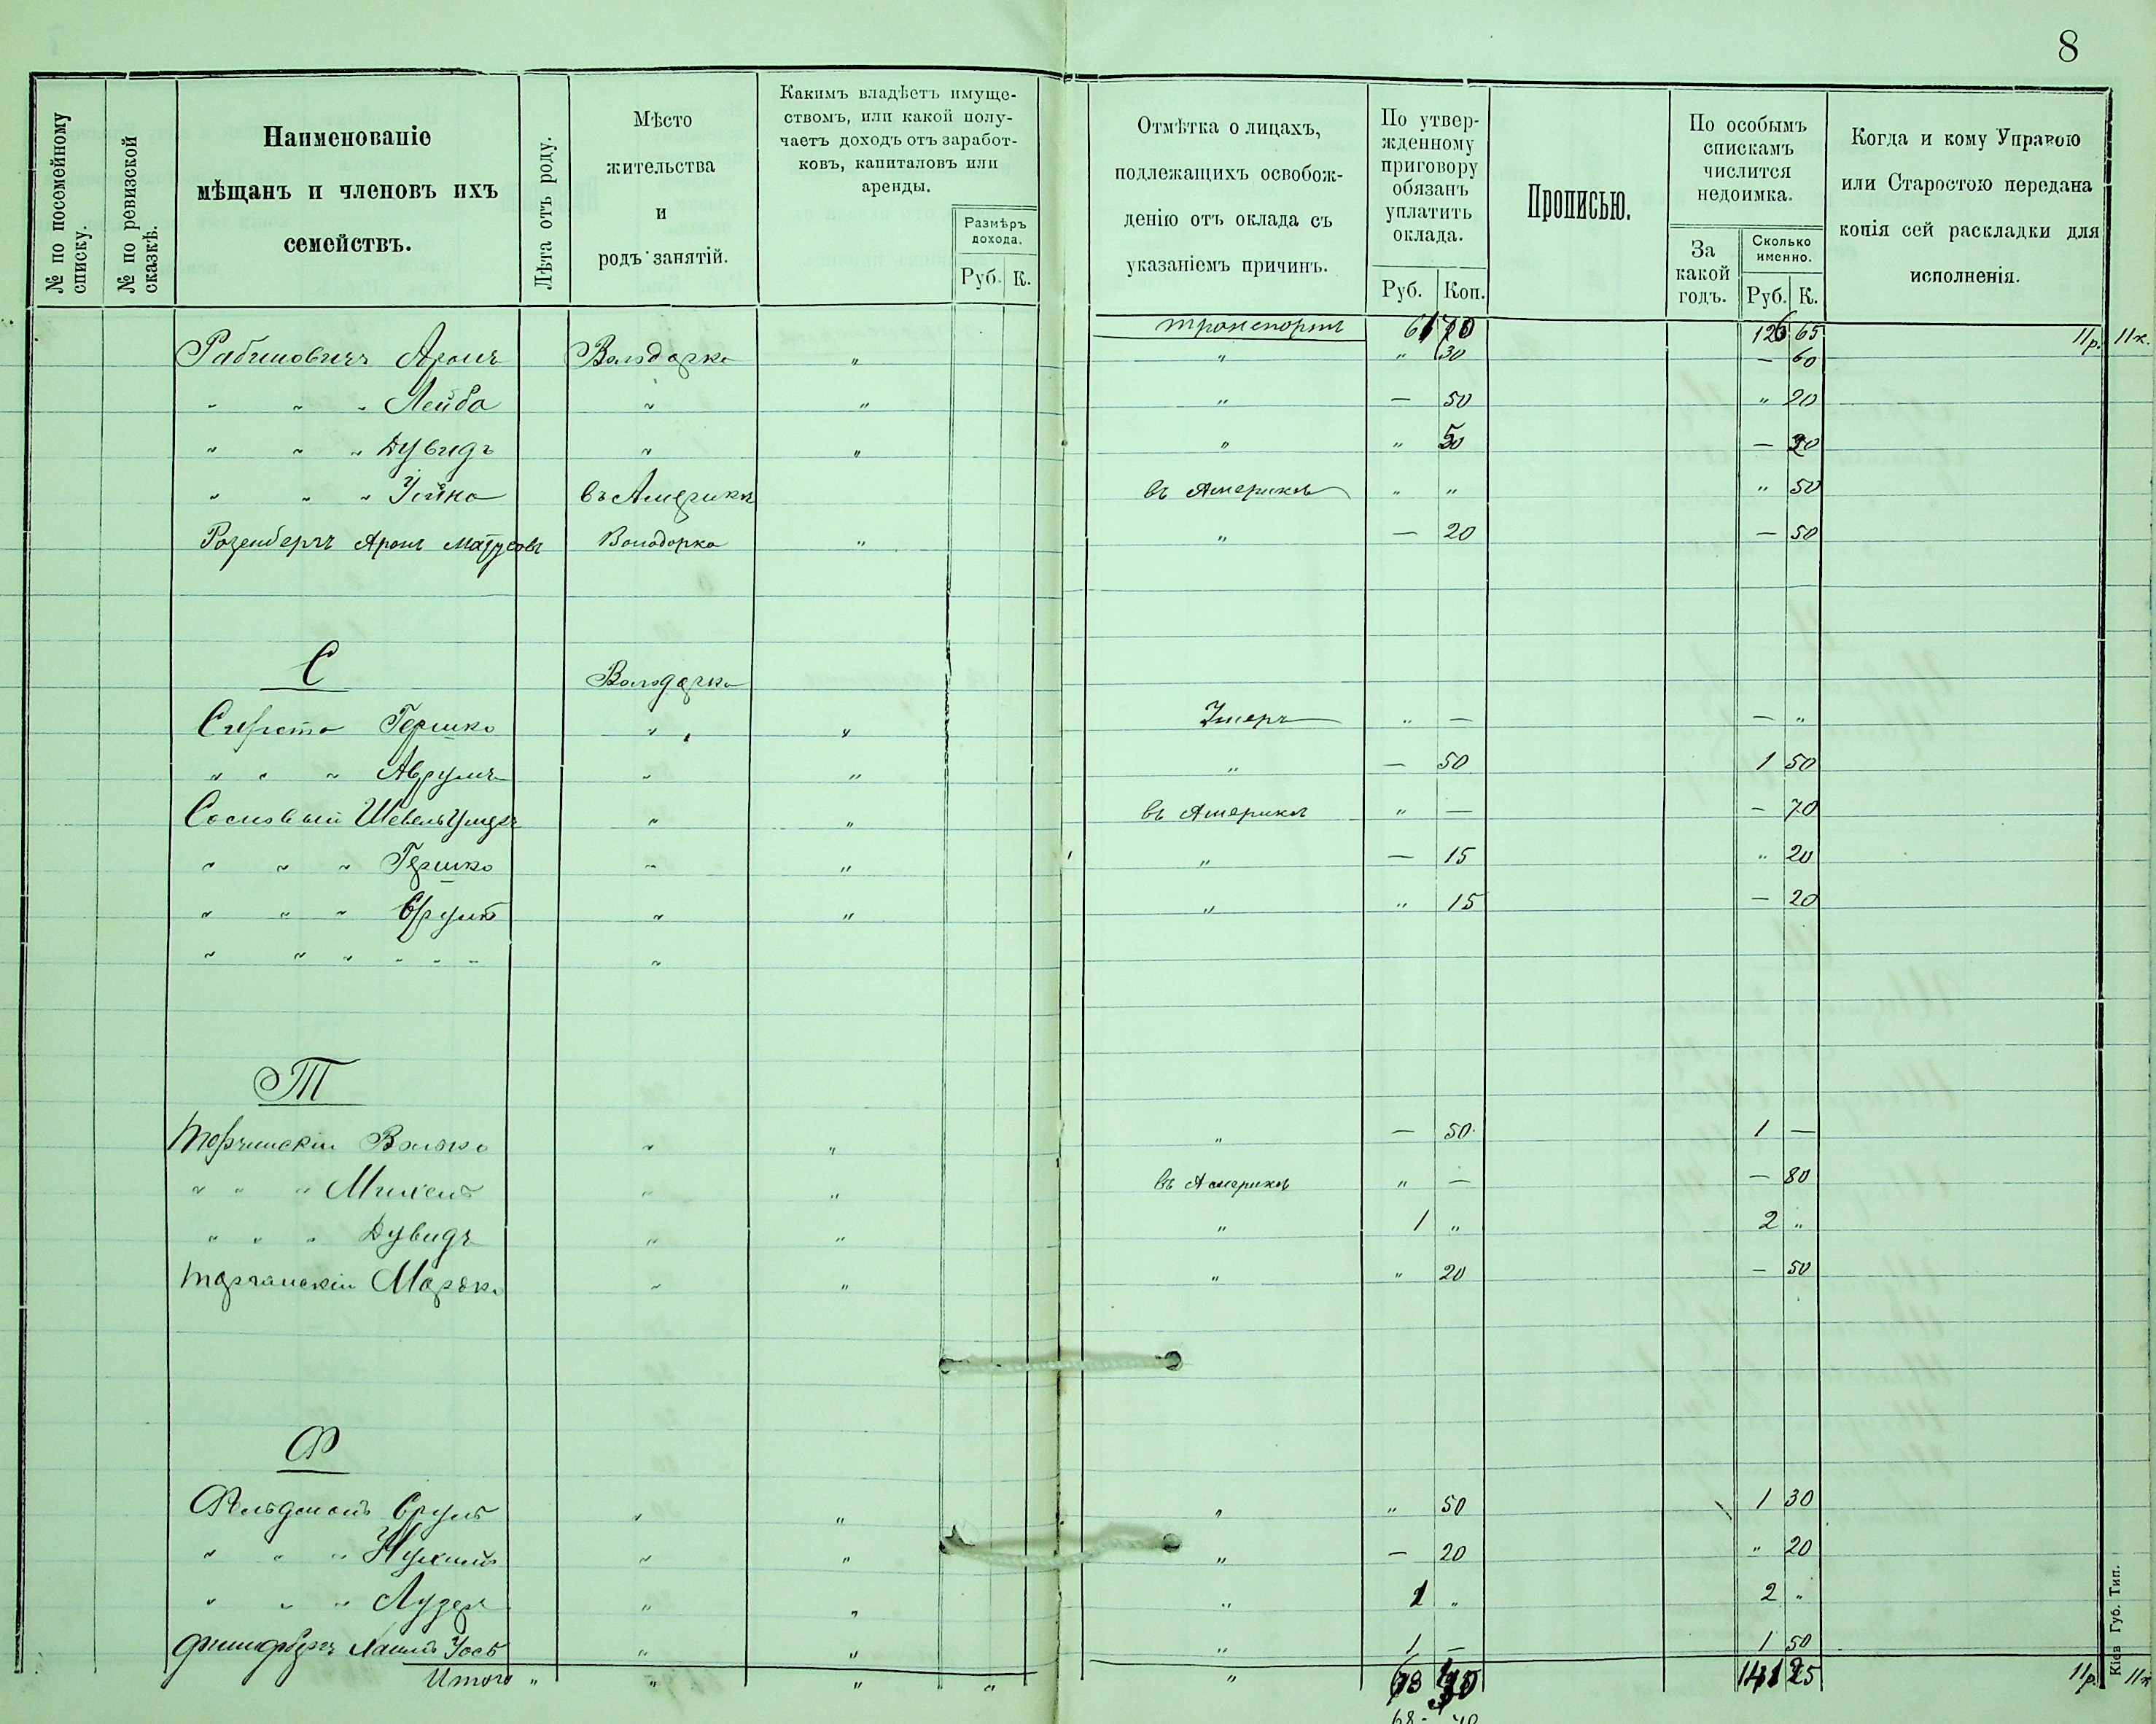 8
№ по посемейному списку.
№ по ревизской сказкѣ.
Наименованіе
мѣщанъ и членовъ ихъ
семействъ.
Лѣта отъ роду.
Мѣсто
жительства
и
родъ занятій.
Какимъ владѣетъ имуще-
ствомъ, или какой полу-
чаетъ доходъ отъ заработ-
ковъ, капиталовъ или
аренды.
Размѣръ
дохода.
Руб. К.
Отмѣтка о лицахъ,
подлежащихъ освобож-
денію отъ оклада съ
указаніемъ причинъ.
По утвер-
жденному
приговору
обязанъ
уплатить
оклада.
Руб. Коп.
Прописью.
По особымъ
спискамъ
числится
недоимка.
За
какой
годъ.
Сколько
именно.
Руб. К.
Когда и кому Управою
или Старостою передана
копія сей раскладки для
исполненія.
транспортъ 61 70 126 65 11р. 11к.
Рабиновичъ Аронъ Володарка " " " 30 — 60
" " " Лейба " " " — 50 " 20
" " " Дувидъ " " " " 50 — 20
" " " въ Америкѣ въ Америкѣ " " " 50
Розенбергъ Аронъ Матусовъ Володарка " " — 20 — 50
С
Володарка
Сирота Гершко " " Умеръ " — — "
" " " Аврумъ " " " — 50 1 50
Сосновый Шевель " " въ Америкѣ " — — 70
" " " Гершко " " " — 15 " 20
" " " Сруль " " " " 15 — 20
" " " " " " "
Т
Торчинскій Волько " " " — 50 1 —
" " " Михель " " въ Америкѣ " — — 80
" " " Дувидъ " " " 1 " 2 "
Торчинскій Моръко " " " " 20 — 50
Ф
Фельдманъ Сруль " " " " 50 1 30
" " " Нухимъ " " " — 20 " 20
" " " Лузеръ " " " 1 " 2 "
Хаимъ " " " 1 — 1 50
Итого " " " " " 68 141 25 11р. 11к
68 - 40
Кіев Губ. Тип.